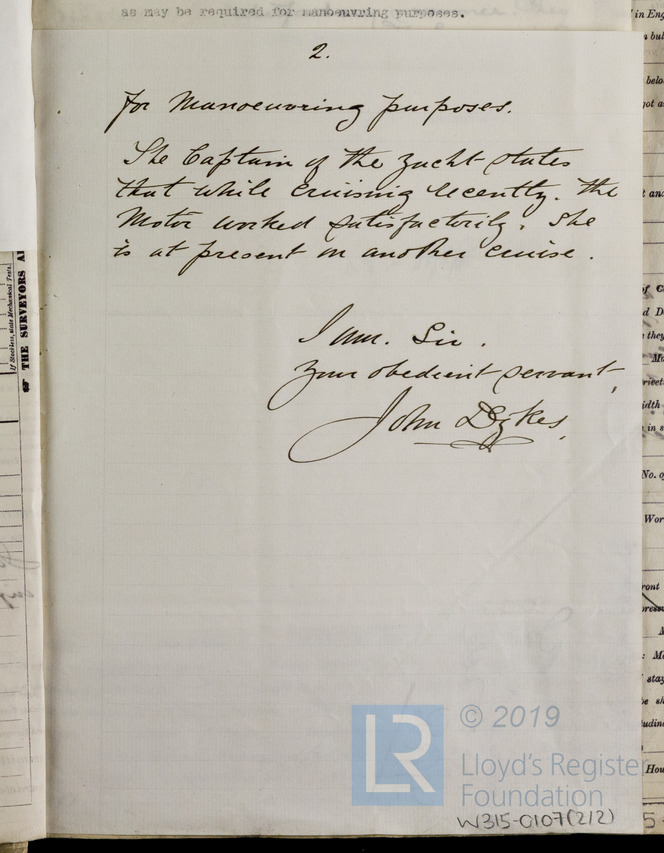 as may be required for manoeuvring purposes.
2.
for manoeuvring purposes.
The Captain of the Yacht states
that while cruising recently. the
Motor worked satisfactorily. She
is at present on another cruise.
I am. Sir.
Your obedient servant,
John Dykes.
If Stockless, state Mechanical Tests.
OF THE SURVEYORS
in Eng
belo
No. of
Wor
stay
Hou
LR
© 2019
Lloyd's Register
Foundation
W315-0107(2/2)